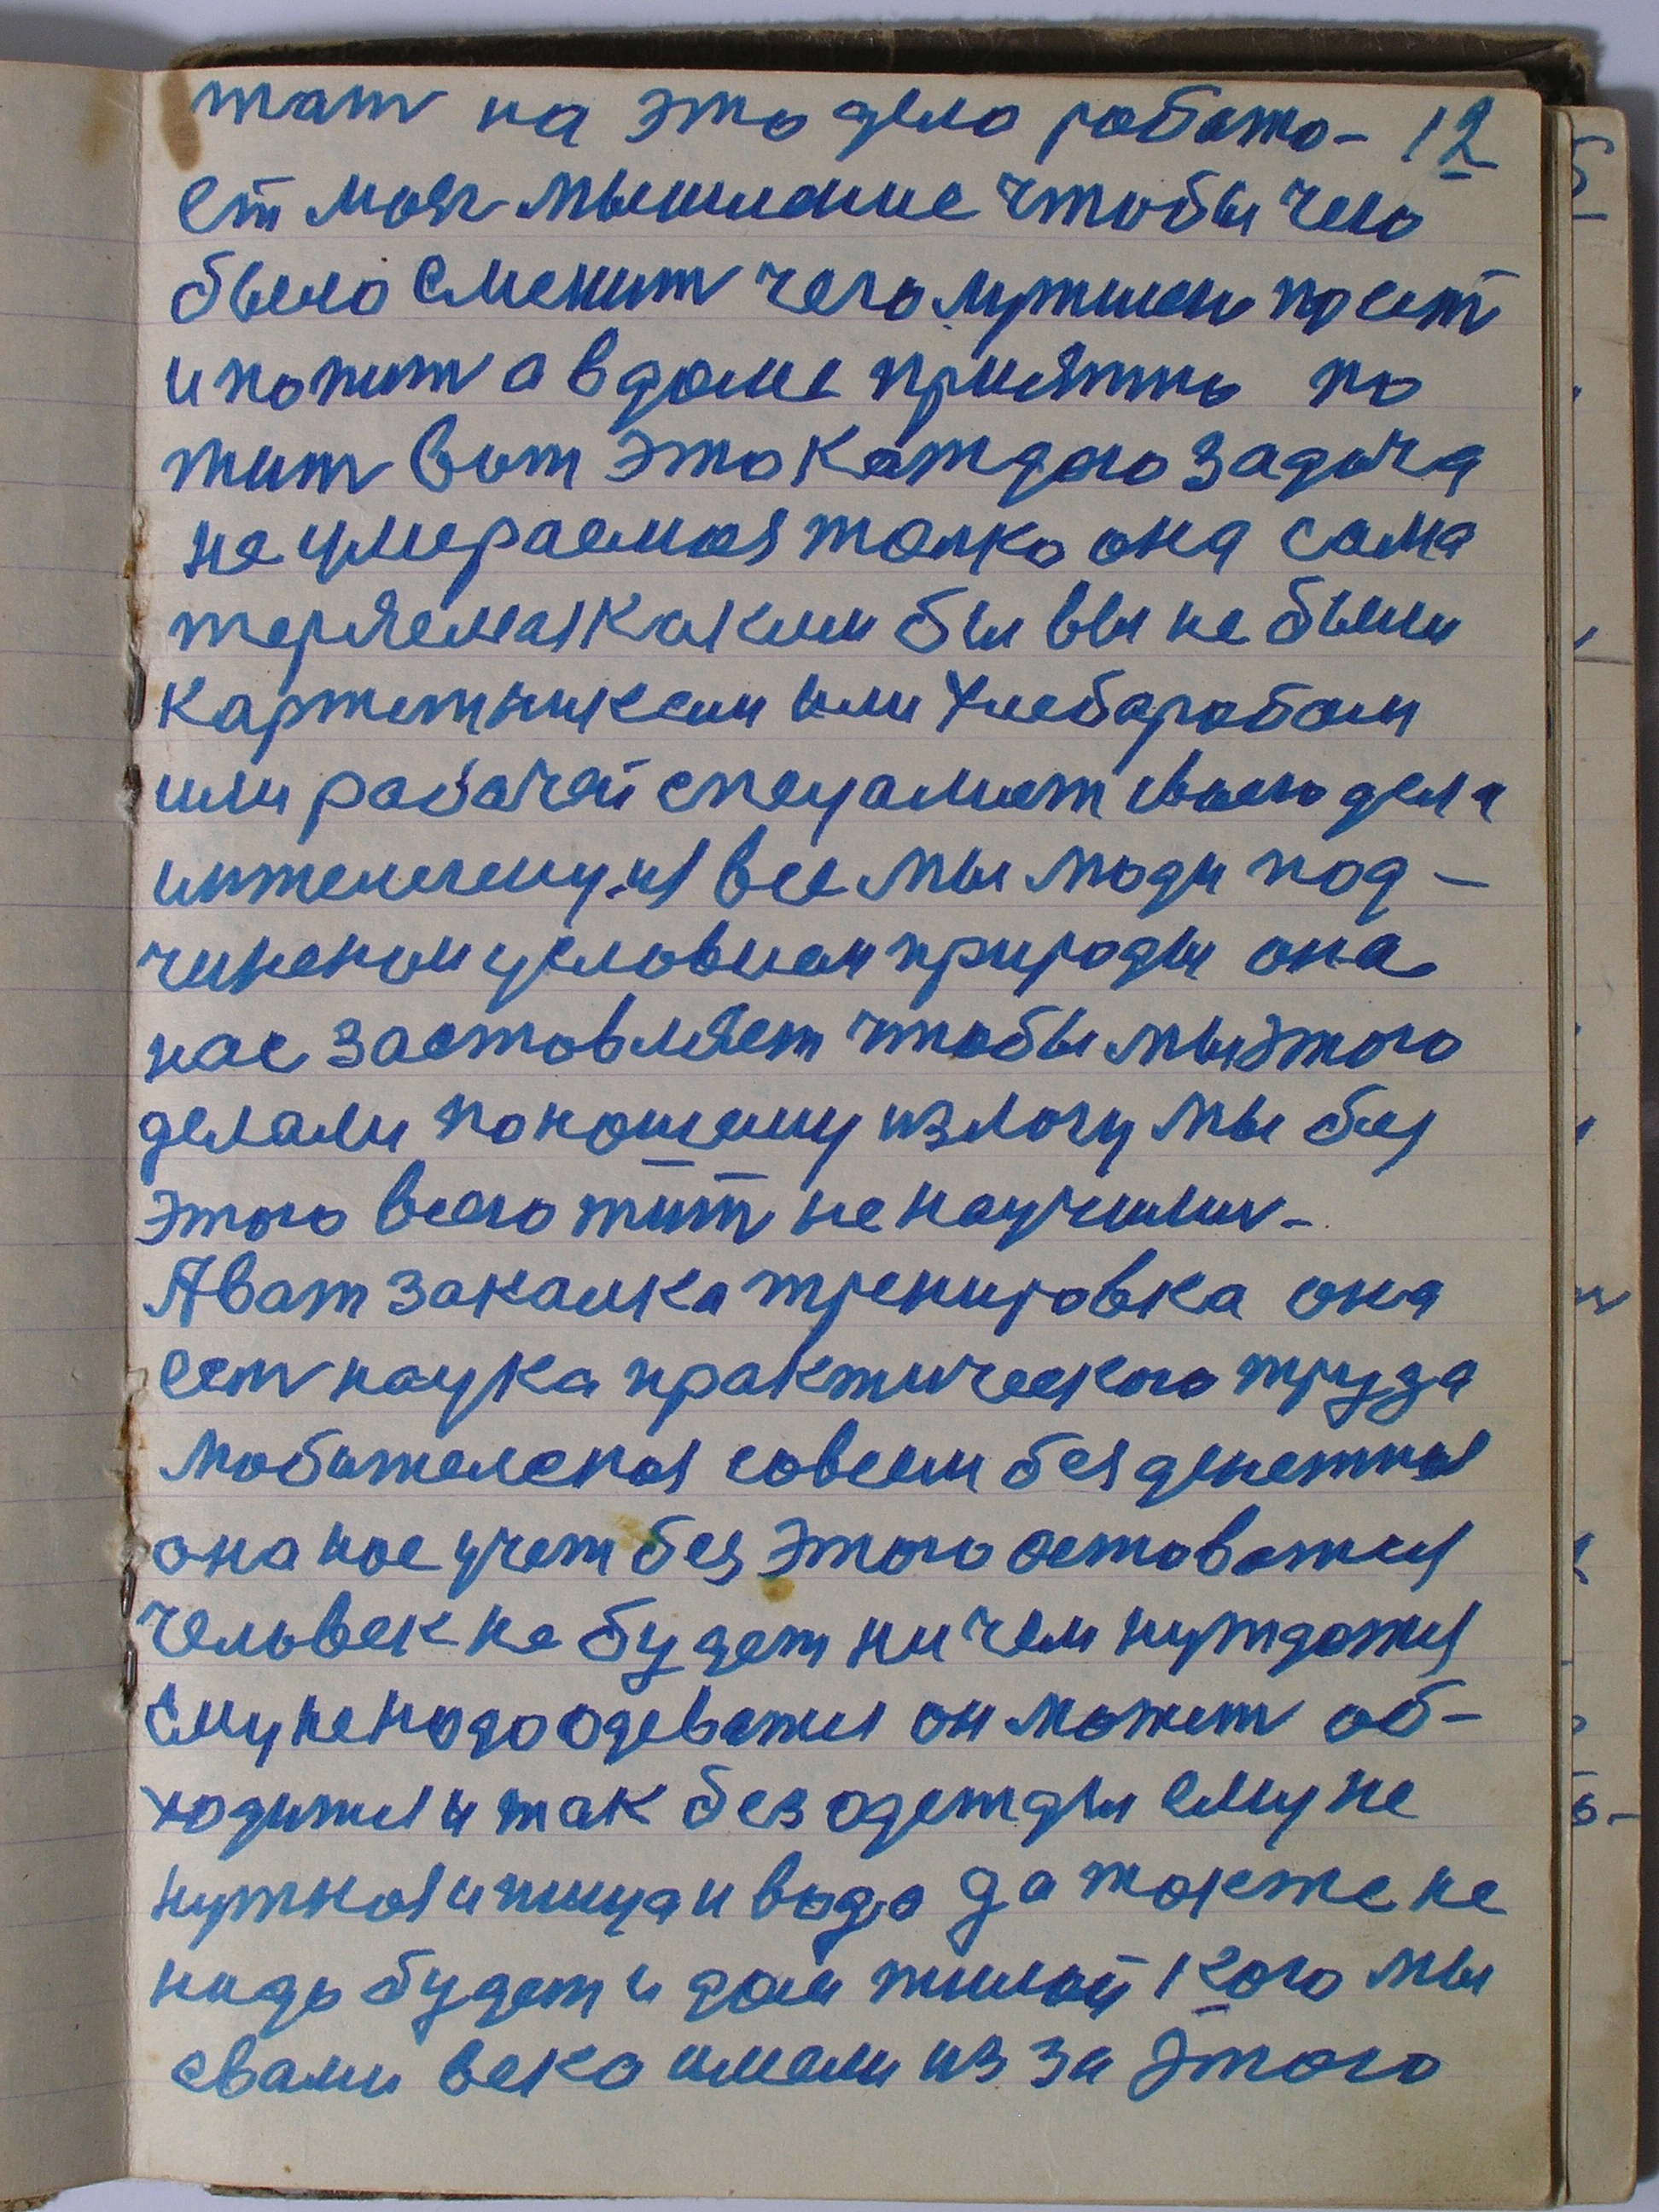 тат на это дело работо- 12
ет мозг мышление чтобы чего
было сменит чего лутшеи поест
и пожит а в доме приятно по
жит вот это каждого задача
не умераемая толко она сама
теряемая каким бы вы не были
картежникем или хлебаробом
или рабачей спецалист своего дела
интелегенция все мы люди под-
чинении условиям природы она
нас заставляет чтобы мы этого
делали по нашему измогу мы без
этого всего жит не научили-
А вот закалка тренировка она
ест наука практического труда
любителская совсем без денежная
она нас учет без этого оставатся
человек не будет ни чем нуждатся
ему не надо одеватся он может об-
ходится и так без одежды ему не
нужная и пища и вода да также не
надо будет и дом жилой кого мы
с вами века имели из за этого